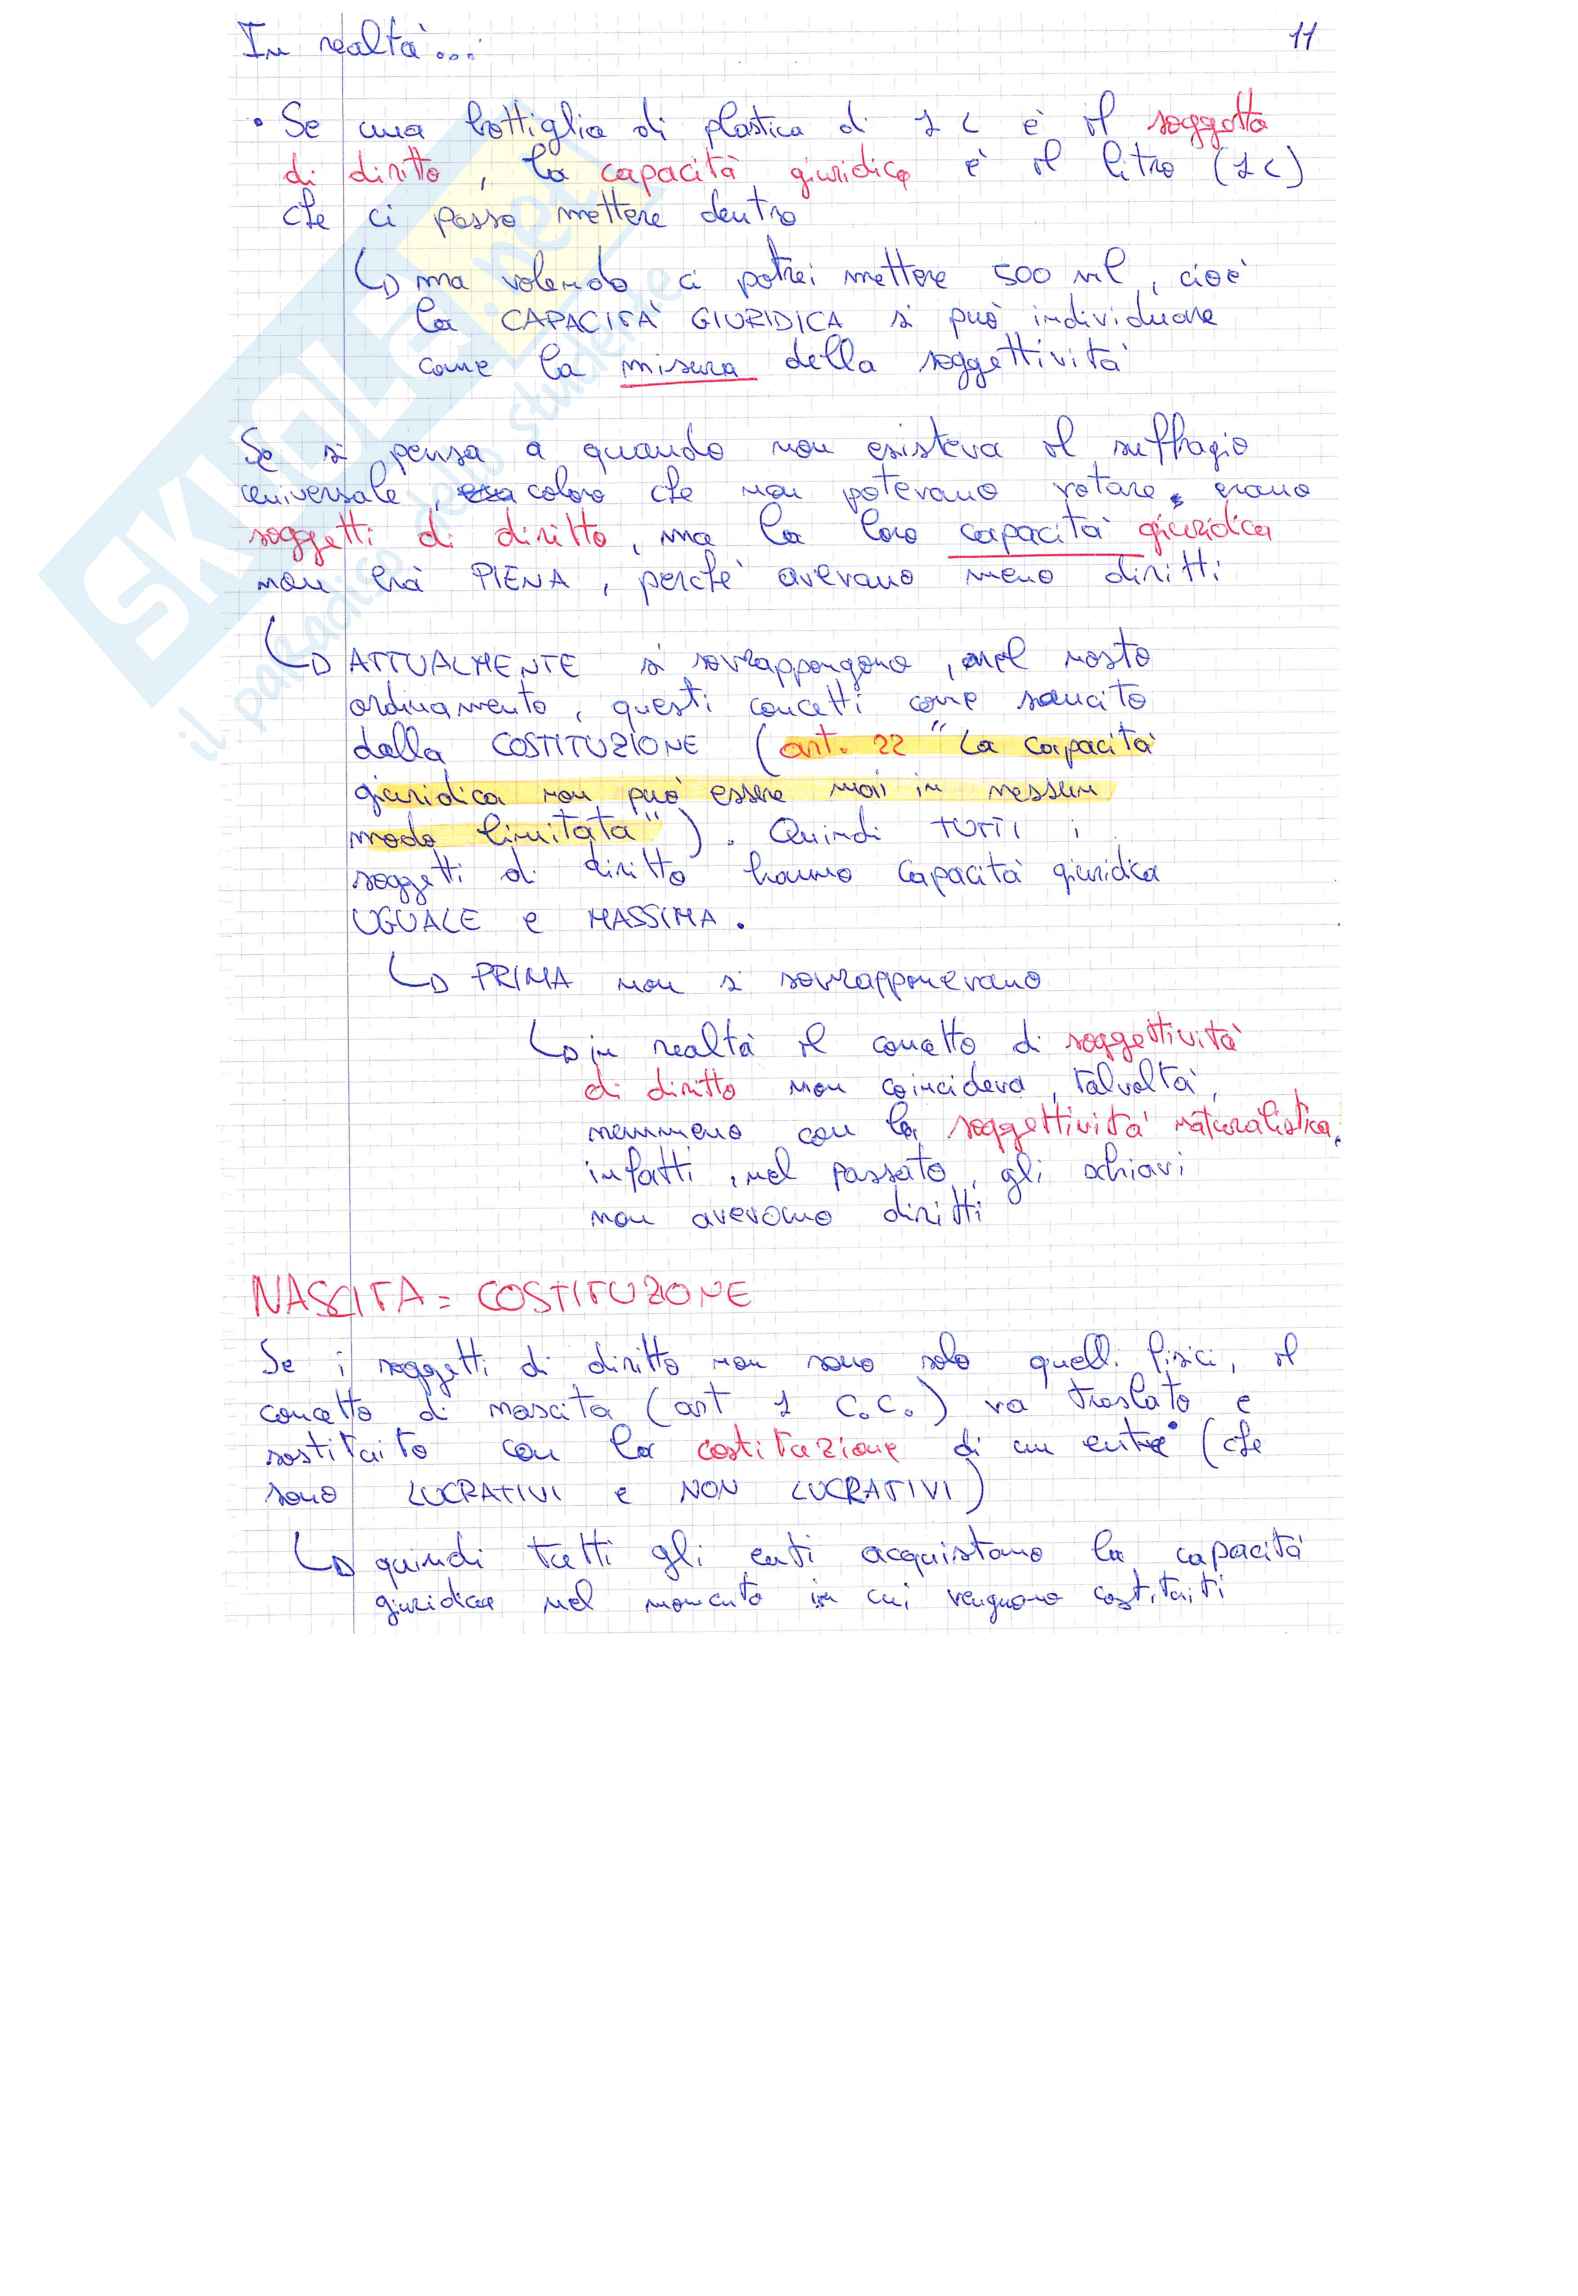 In realtà...
11
• Se una bottiglia di plastica di 1 L è il soggetto
di diritto, la capacità giuridica è il litro (1 L)
che ci posso mettere dentro
↳ ma volendo ci potrei mettere 500 ml, cioè
la CAPACITÀ GIURIDICA si può individuare
come la misura della soggettività
Se si pensa a quando non esisteva il suffragio
universale, coloro che non potevano votare, erano
soggetti di diritto, ma la loro capacità giuridica
non era PIENA, perchè avevano meno diritti
↳ ATTUALMENTE si sovrappongono, nel nosto
ordinamento, questi concetti come sancito
dalla COSTITUZIONE (art. 22 "La capacità
giuridica non può essere mai in nessun
modo limitata"). Quindi TUTTI i
soggetti di diritto hanno capacità giuridica
UGUALE e MASSIMA.
↳ PRIMA non si sovrapponevano
↳ in realtà il concetto di soggettività
di diritto non coincideva, talvolta,
nemmeno con la soggettività naturalistica,
infatti, nel passato, gli schiavi
non avevano diritti
NASCITA = COSTITUZIONE
Se i soggetti di diritto non sono solo quelli fisici, il
concetto di nascita (art 1 C.C.) va traslato e
sostituito con la costituzione di un ente (che
sono LUCRATIVI e NON LUCRATIVI)
↳ quindi tutti gli enti acquistano la capacità
giuridica nel momento in cui vengono costituiti
SKUOLA.net
il paradiso dello studente